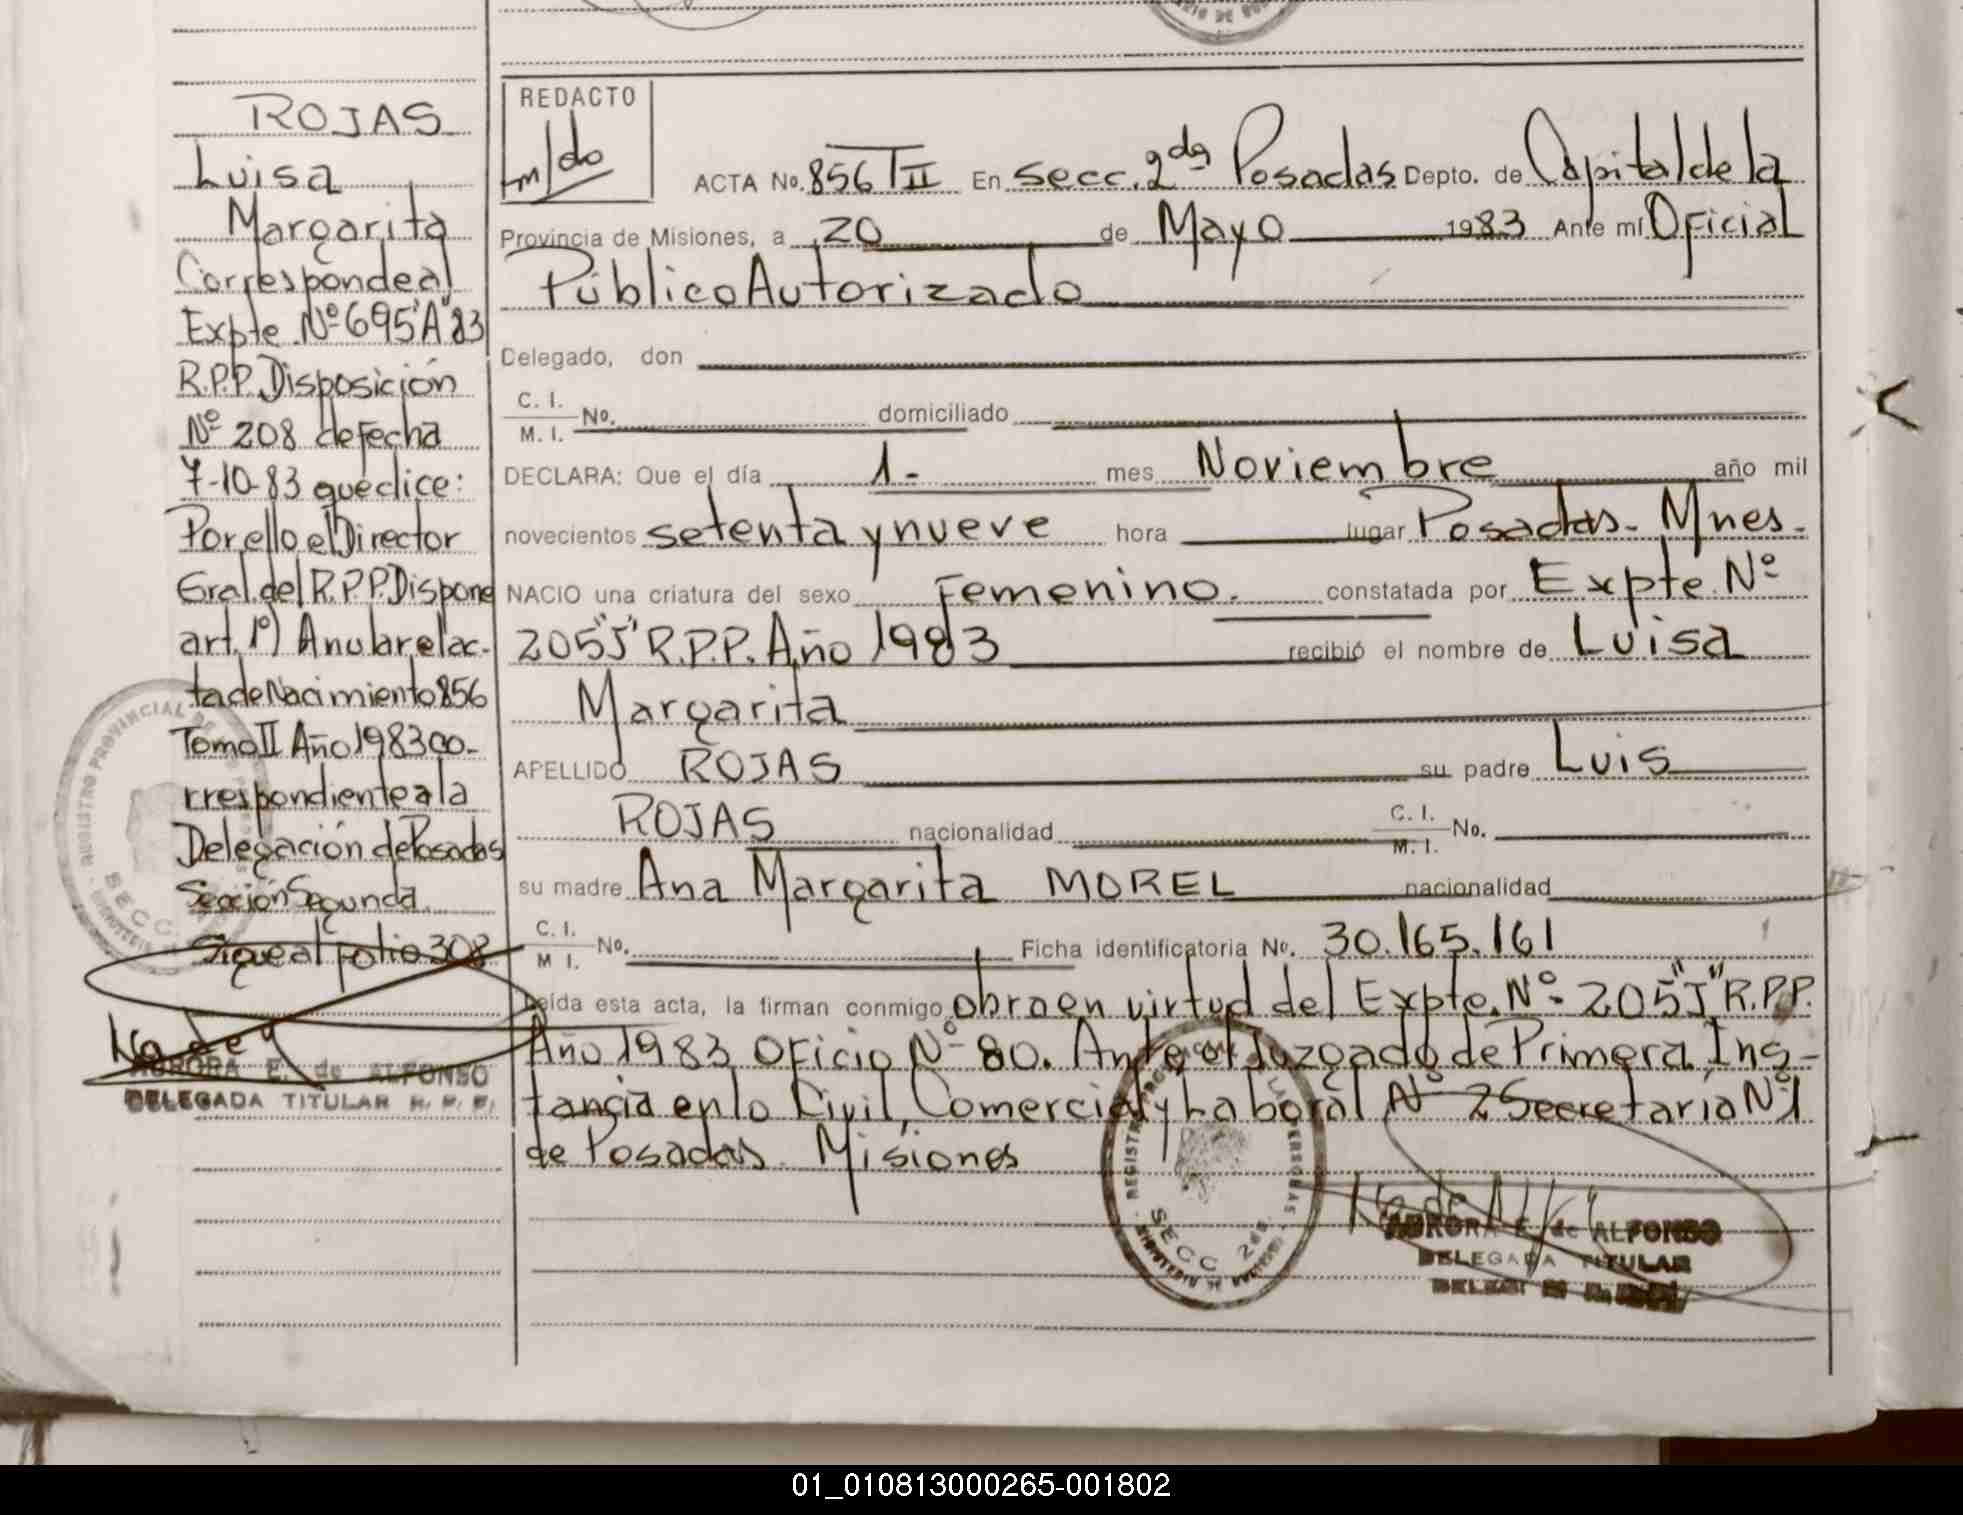 ROJAS
Luisa
Margarita
Corresponde al
Expte Nº 695"A"83
R.P.P. Disposición
Nº 208 de fecha
7-10-83 que dice:
Por ello el Director
Gral. del R.P.P. Dispone
art. 1º) Anular el ac-
ta de Nacimiento 856
Tomo II Año 1983 co-
rrespondiente a la
Delegación de Posadas
Sección Segunda.
Sigue al folio 308
AURORA E. de ALFONSO
DELEGADA TITULAR R. P. P.
REDACTO
ACTA No. 856 T II En Secc. 2da Posadas Depto. de Capital de la
Provincia de Misiones, a 20 de Mayo 1983 Ante mí Oficial
Público Autorizado
Delegado, don
C. I.
M. I. No. domiciliado
DECLARA: Que el día 1- mes Noviembre año mil
novecientos setenta y nueve hora lugar Posadas- Mnes.
NACIO una criatura del sexo Femenino. constatada por Expte. Nº
205"J" R.P.P. Año 1983 recibió el nombre de Luisa
Margarita
APELLIDO ROJAS su padre Luis
ROJAS nacionalidad C. I.
M. I. No.
su madre Ana Margarita MOREL nacionalidad
C. I.
M I. No. Ficha identificatoria No. 30.165.161
Leída esta acta, la firman conmigo obra en virtud del Expte. Nº- 205"J" R.P.P.
Año 1983 Oficio Nº 80. Ante el Juzgado de Primera Ins-
tancia en lo Civil, Comercial y Laboral Nº 2 Secretaría Nº1
de Posadas. Misiones
REGISTRO PROVINCIAL DE LAS PERSONAS
SECC 2da.
AURORA E. de ALFONSO
DELEGADA TITULAR
01_010813000265-001802